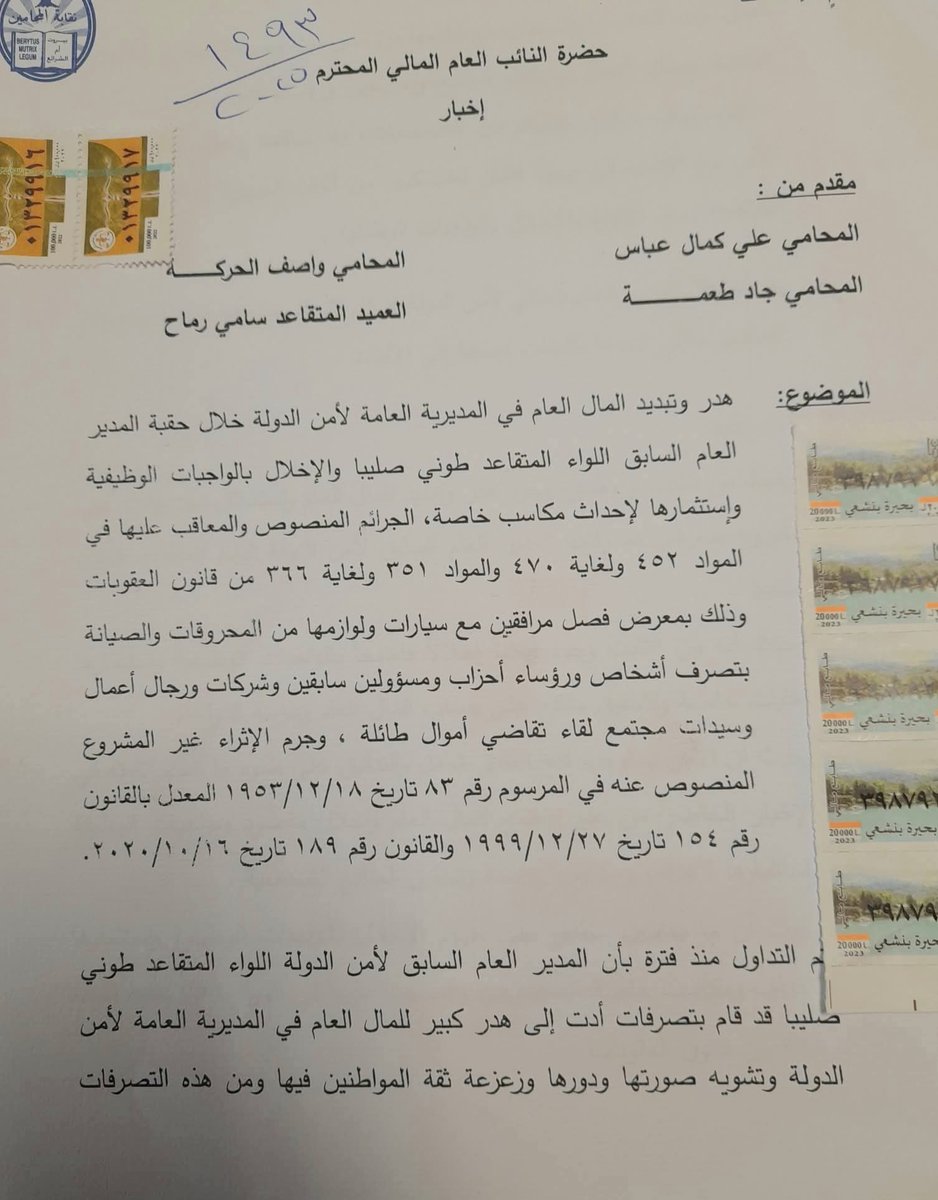 نقابة المحامين
BERYTUS
MUTRIX
LEGUM
بيروت
أم
الشرائع
١٤٩٣
حضرة النائب العام المالي المحترم
إخبار
٠١٣٢٩٩١٦
٠١٣٢٩٩١٧
مقدم من :
المحامي علي كمال عباس
المحامي واصف الحركـــــة
المحامي جاد طعمـــــــــة
العميد المتقاعد سامي رماح
الموضوع:
هدر وتبديد المال العام في المديرية العامة لأمن الدولة خلال حقبة المدير
العام السابق اللواء المتقاعد طوني صليبا والإخلال بالواجبات الوظيفية
وإستثمارها لإحداث مكاسب خاصة، الجرائم المنصوص والمعاقب عليها في
المواد ٤٥٢ ولغاية ٤٧٠ والمواد ٣٥١ ولغاية ٣٦٦ من قانون العقوبات
وذلك بمعرض فصل مرافقين مع سيارات ولوازمها من المحروقات والصيانة
بتصرف أشخاص ورؤساء أحزاب ومسؤولين سابقين وشركات ورجال أعمال
وسيدات مجتمع لقاء تقاضي أموال طائلة ، وجرم الإثراء غير المشروع
المنصوص عنه في المرسوم رقم ٨٣ تاريخ ١٩٥٣/١٢/١٨ المعدل بالقانون
رقم ١٥٤ تاريخ ١٩٩٩/١٢/٢٧ والقانون رقم ١٨٩ تاريخ ٢٠٢٠/١٠/١٦.
بحيرة بنشعي
20000 L
2023
بحيرة بنشعي
20000 L
2023
بحيرة بنشعي
20000 L
2023
٣٩٨٧٩٢
بحيرة بنشعي
20000 L
2023
٣٩٨٧٩
بحيرة بنشعي
20000 L
2023
التداول منذ فترة بأن المدير العام السابق لأمن الدولة اللواء المتقاعد طوني
صليبا قد قام بتصرفات أدت إلى هدر كبير للمال العام في المديرية العامة لأمن
الدولة وتشويه صورتها ودورها وزعزعة ثقة المواطنين فيها ومن هذه التصرفات